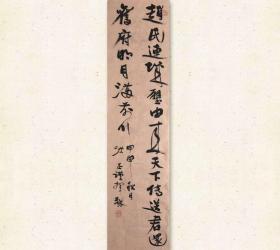 趙氏連城璧由來天下傳送君還
舊府明月滿前川
甲申秋月